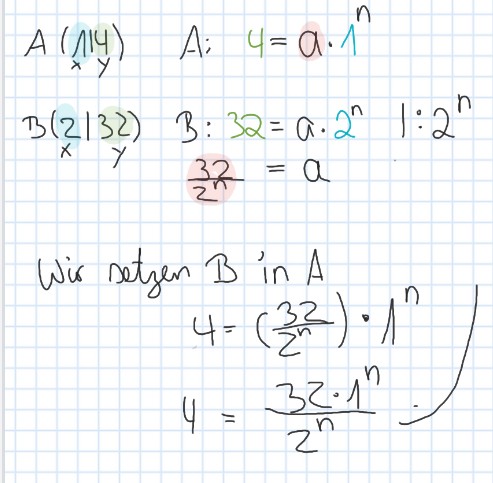 A (1|4) A: 4 = a · 1^n
x y
B (2|32) B: 32 = a · 2^n | : 2^n
x y
32/2^n = a
Wir setzen B in A
4 = (32/2^n) · 1^n
4 = 32 · 1^n / 2^n